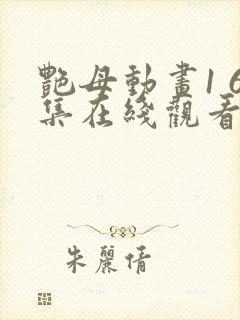 艷母動畫16
集在綫觀看
朱麗倩